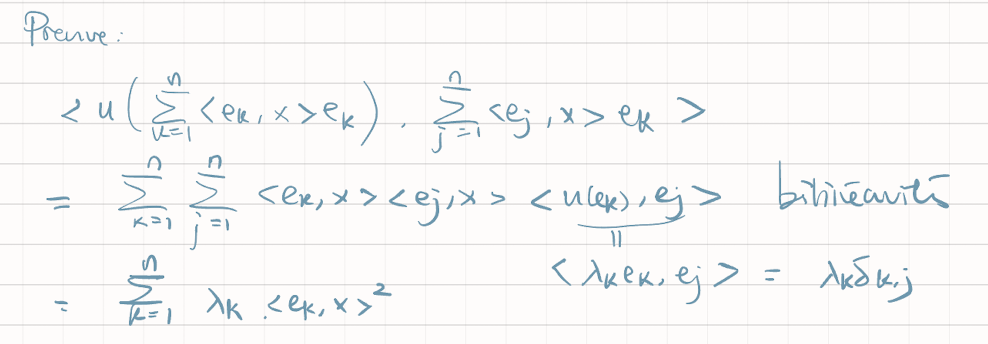 Preuve :
< u ( ∑_{k=1}^{n} <e_k, x> e_k ) . ∑_{j=1}^{n} <e_j, x> e_k >
= ∑_{k=1}^{n} ∑_{j=1}^{n} <e_k, x> <e_j, x> < u(e_k), e_j > bilinéarité
||
= ∑_{k=1}^{n} λ_k . <e_k, x>² < λ_k e_k, e_j > = λ_k δ_{k,j}